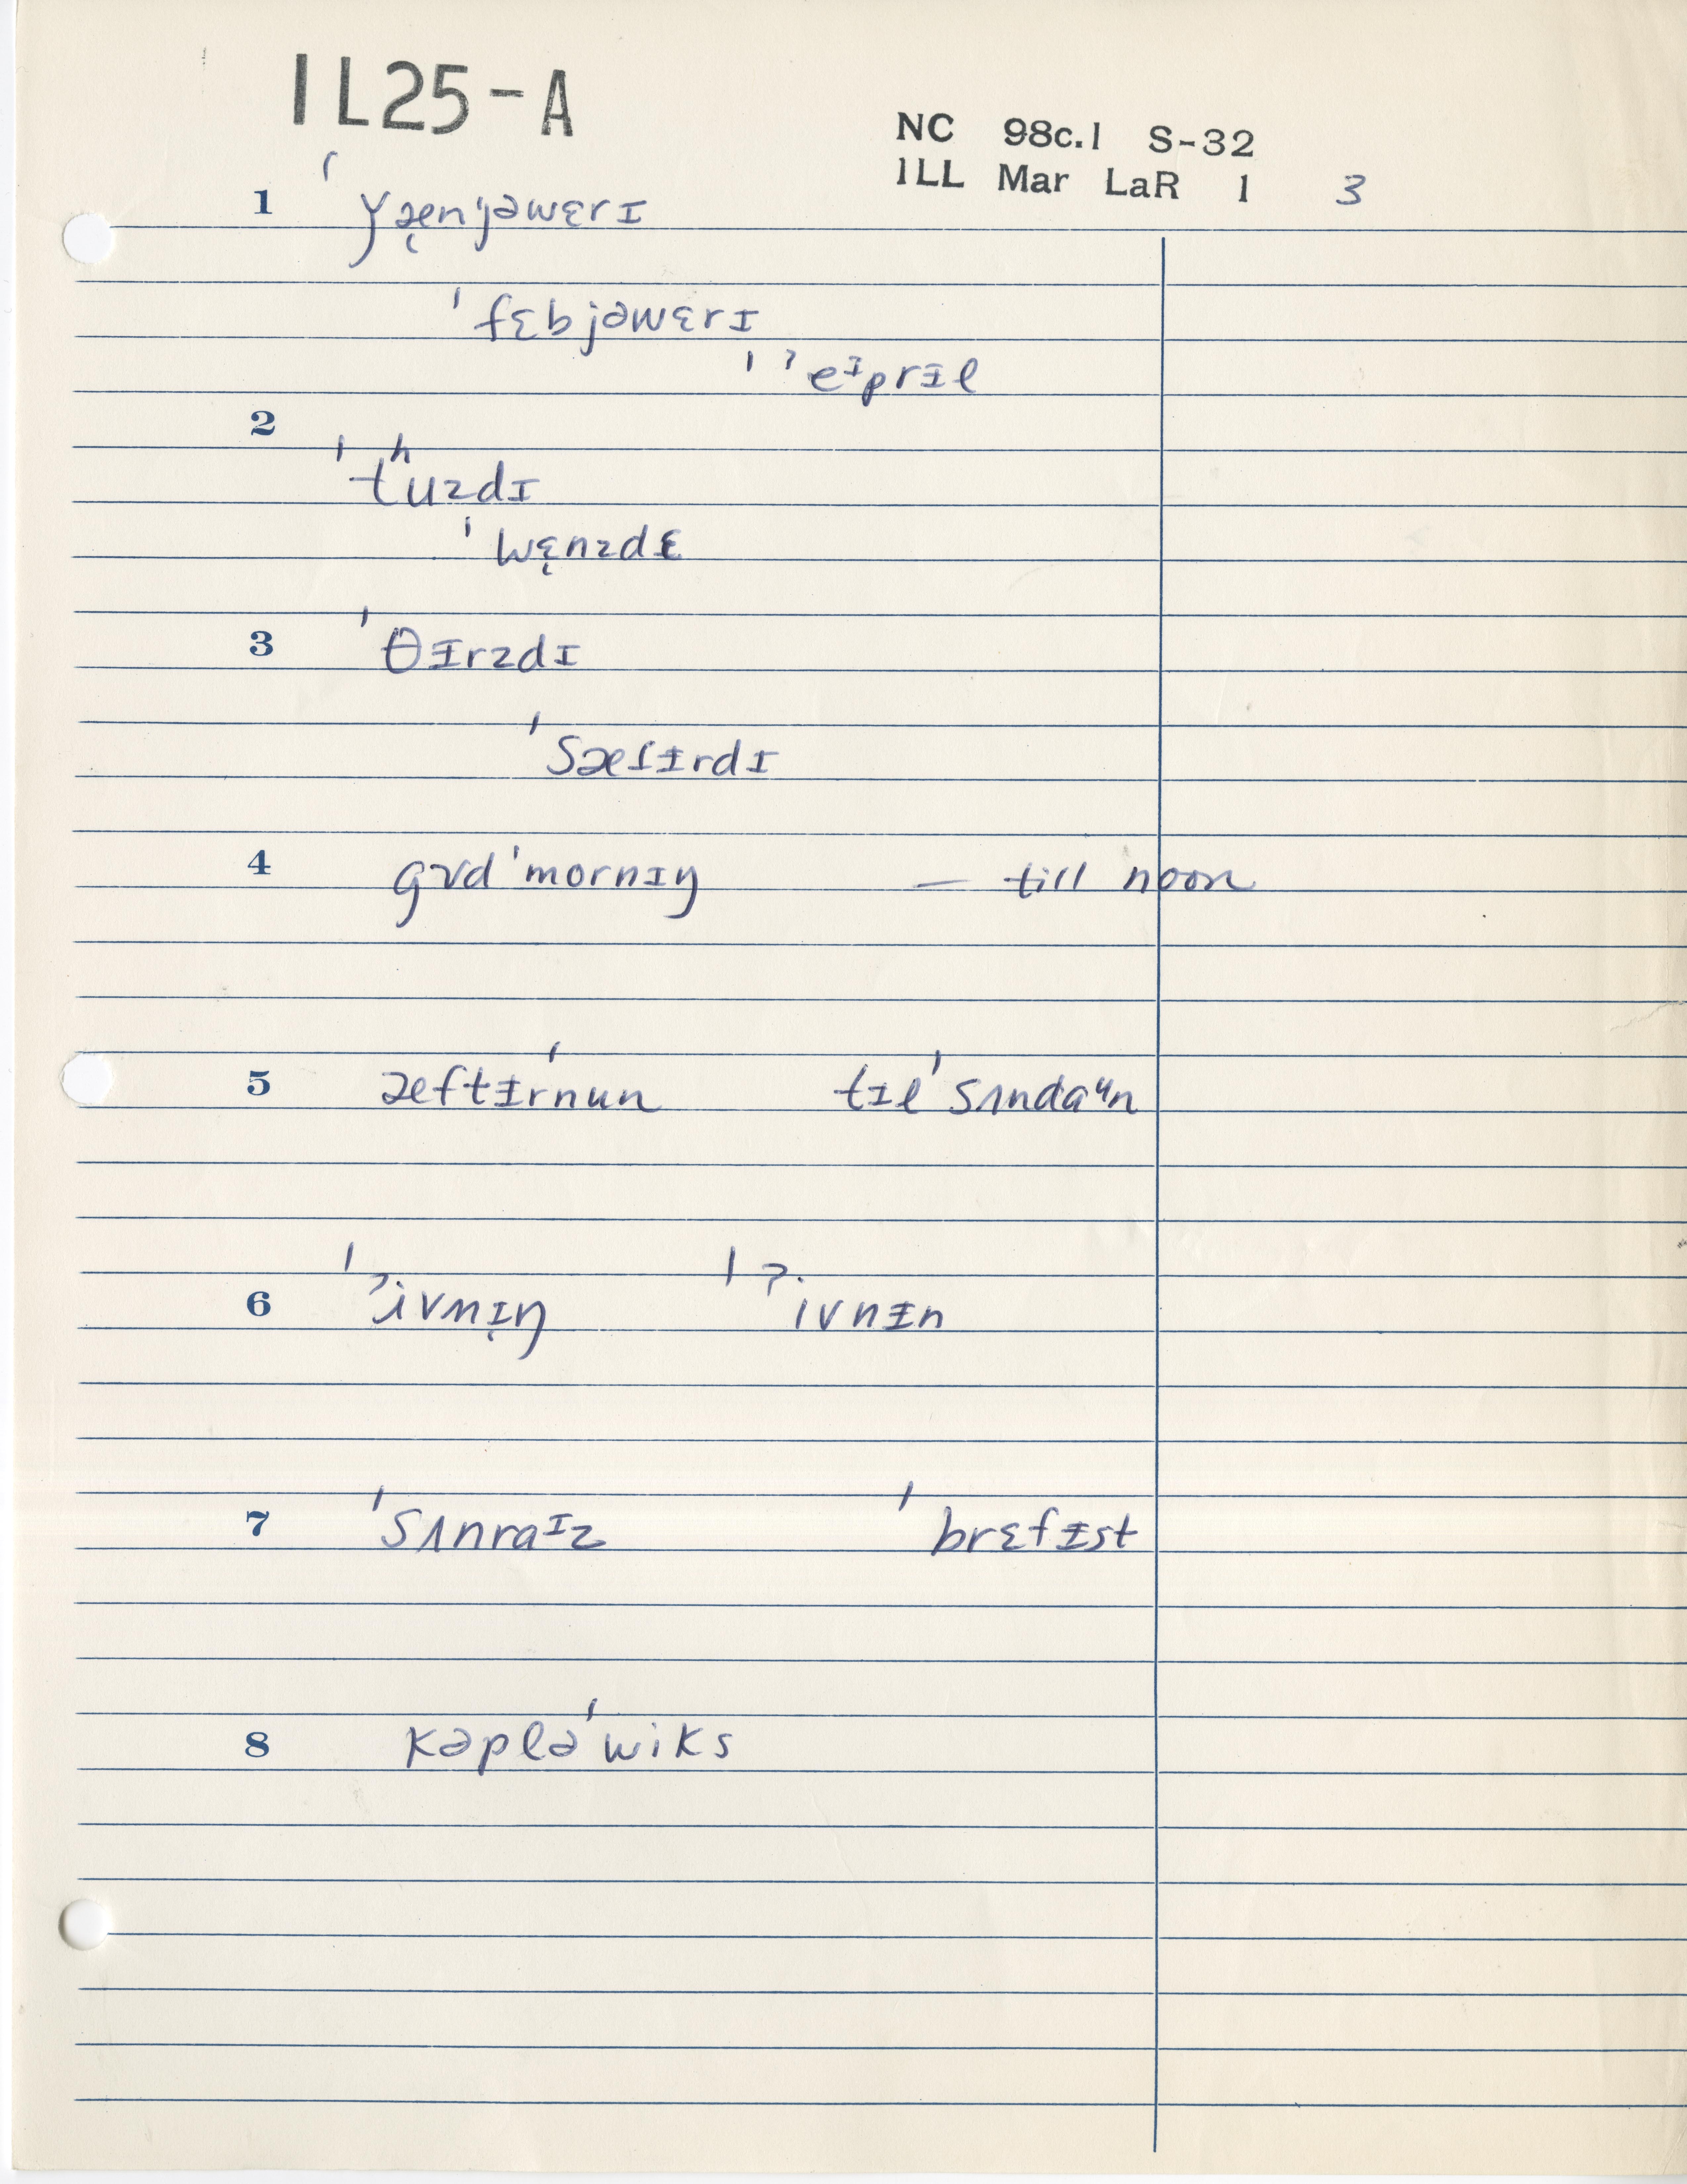 IL25-A
NC 98c.1 S-32
ILL Mar LaR 1 3
1 ˈɣæ̨nˈjəwɛrɪ
ˈfɛbjəwɛrɪ
ˈˀeᶦprɪl
2
ˈtʰuzdɪ
ˈwɛ̨nzdɛ
3 ˈθɪrzdɪ
ˈsæɾɨrdɪ
4 gʊdˈmornɪŋ — till noon
5 æftɨrˈnun tɪlˈsʌndaᵘn
6 ˈˀivnɪ̨ŋ ˈˀivnɨn
7 ˈsʌnraᶦz ˈbrɛfɨst
8 kəpləˈwiks